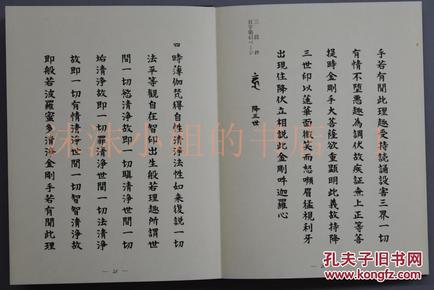 手若有聞此理趣受持読誦設害三界一切
有情不墮悪趣為調伏故疾証無上正等菩
提時金剛手大菩薩欲重顕明此義故持降
三世印以蓮華面微笑而怒顰眉猛視利牙
出現住降伏立相説此金剛吽迦羅心
降三世
四 時薄伽梵得自性清浄法性如来復説一切
法平等観自在智印出生般若理趣所謂世
間一切慾清浄故即一切瞋清浄世間一切
垢清浄故即一切罪清浄世間一切法清浄
故即一切有情清浄世間一切智智清浄故
即般若波羅蜜多清浄金剛手若有聞此理
孔夫子旧书网